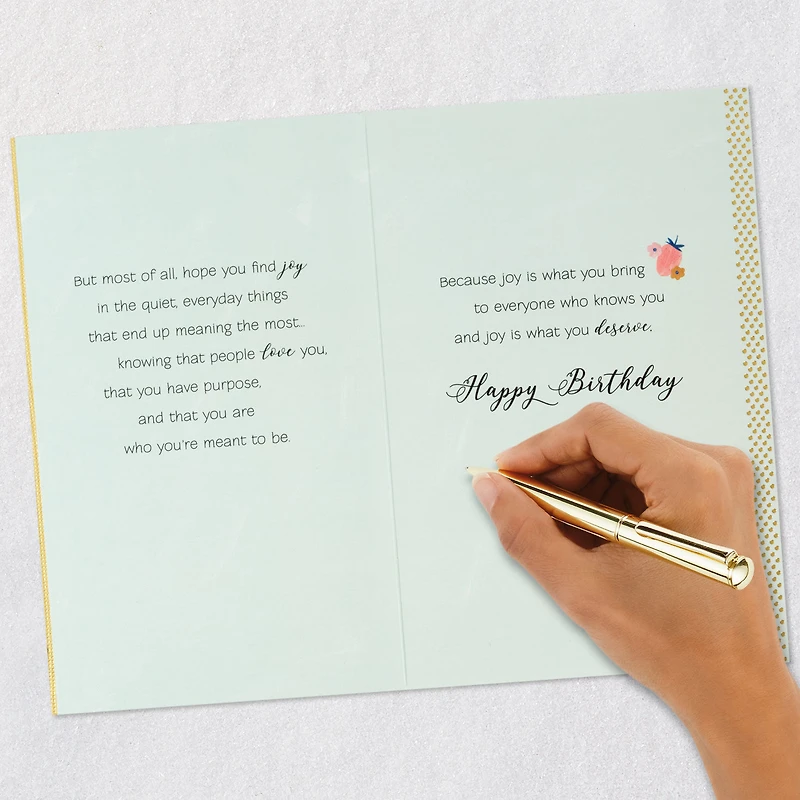 But most of all, hope you find joy
in the quiet, everyday things
that end up meaning the most...
knowing that people love you,
that you have purpose,
and that you are
who you're meant to be.
Because joy is what you bring
to everyone who knows you
and joy is what you deserve.
Happy Birthday